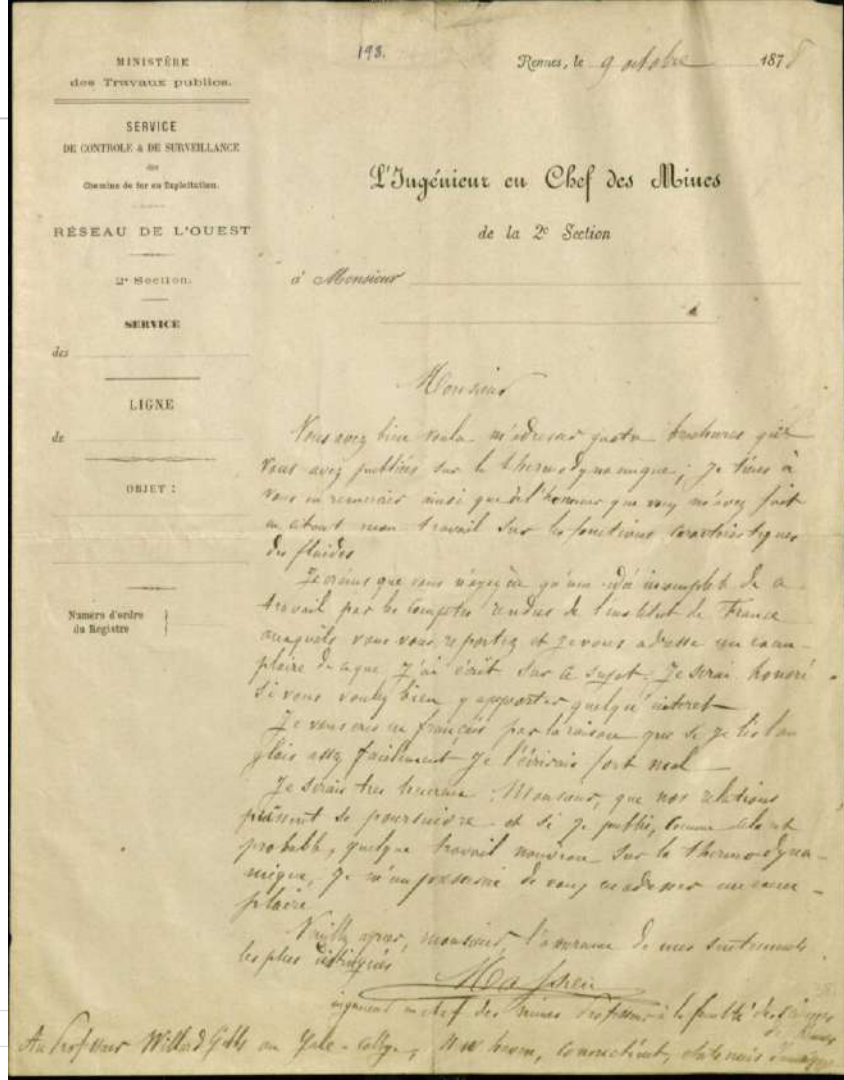 MINISTÈRE
des Travaux publics.
SERVICE
DE CONTROLE & DE SURVEILLANCE
des
Chemins de fer en Exploitation.
RÉSEAU DE L'OUEST
2e Section.
SERVICE
des
LIGNE
de
OBJET :
Numéro d'ordre
du Registre
198.
Rennes, le 9 octobre 1878
L'Ingénieur en Chef des Mines
de la 2e Section
à Monsieur
Monsieur
Vous avez bien voulu m'adresser quatre brochures que
vous avez publiées sur la thermodynamique ; je tiens à
vous en remercier ainsi que de l'honneur que vous m'avez fait
en citant mon travail sur les fonctions caractéristiques
des fluides
Je crains que vous n'ayez qu'une idée incomplète de ce
travail par les comptes rendus de l'institut de France
auxquels vous vous reportez et je vous adresse un exem-
plaire de ce que j'ai écrit sur ce sujet. Je serai honoré
si vous voulez bien y apporter quelqu'intérêt
Je vous écris en français par la raison que si je lis l'an
glais assez facilement je l'écrirais fort mal
Je serais très heureux, Monsieur, que nos relations
puissent se poursuivre et si je publie, comme cela est
probable, quelque travail nouveau sur la thermodyna-
mique, je m'empresserai de vous en adresser un exem-
plaire
Veuillez agréer, monsieur, l'assurance de mes sentiments
les plus distingués
Massieu
ingénieur en chef des mines Professeur à la faculté des sciences
de Rennes
Au Professeur Willard Gibbs au Yale-College, New haven, Connecticut, états unis d'amérique